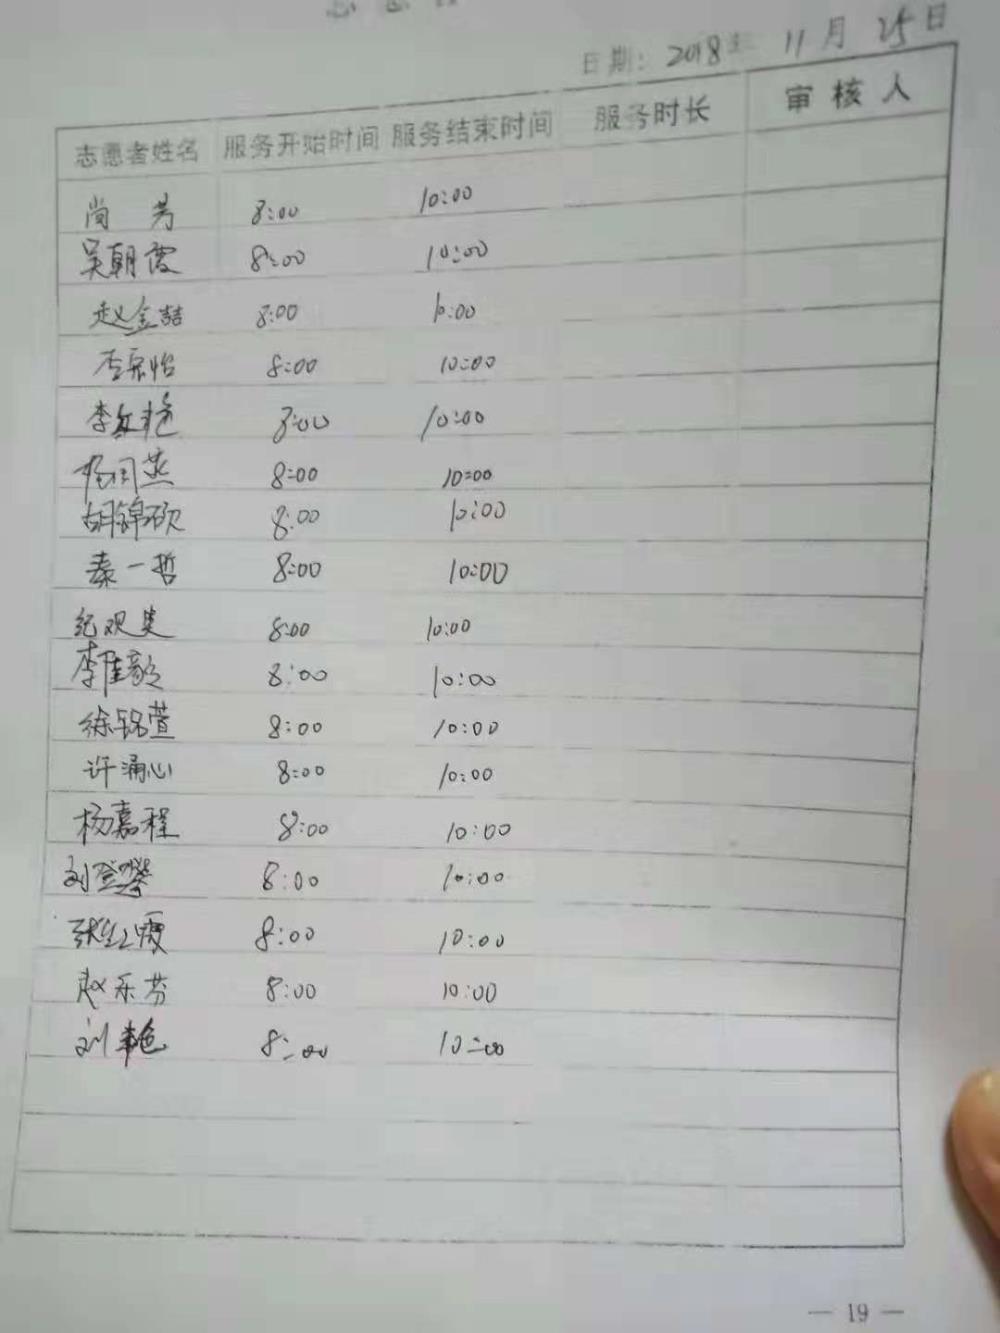 日期: 2018年 11月 25日
志愿者姓名 服务开始时间 服务结束时间 服务时长 审核人
尚 芳 8:00 10:00
吴朝霞 8:00 10:00
赵金喆 8:00 10:00
李宗怡 8:00 10:00
李红艳 8:00 10:00
杨闰燕 8:00 10:00
胡锦硕 8:00 10:00
秦一哲 8:00 10:00
纪观昊 8:00 10:00
李佳歆 8:00 10:00
徐铭萱 8:00 10:00
许涌心 8:00 10:00
杨嘉程 8:00 10:00
刘登攀 8:00 10:00
8:00 10:00
赵乐芬 8:00 10:00
刘艳 8:00 10:00
— 19 —